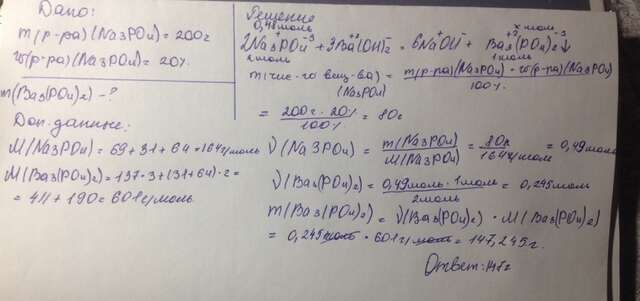 Дано:
m(р-ра)(Na3PO4)=200г
w(р-ра)(Na3PO4)=20%.
m(Ba3(PO4)2)-?
Доп. данные:
M(Na3PO4)=69+31+64=164г/моль
M(Ba3(PO4)2)=137·3+(31+64)·2=
=411+190=601г/моль
Решение
0,49моль
x моль
2Na3PO4+3Ba(OH)2=6NaOH+Ba3(PO4)2↓
2 моль
1 моль
m(чис-го вещ-ва)(Na3PO4)=m(р-ра)(Na3PO4)·w(р-ра)(Na3PO4)
100%
=200г·20%/100%=80г
ν(Na3PO4)=m(Na3PO4)/M(Na3PO4)=80г/164г/моль=0,49моль
ν(Ba3(PO4)2)=0,49моль·1моль/2моль=0,245моль
m(Ba3(PO4)2)=ν(Ba3(PO4)2)·M(Ba3(PO4)2)
=0,245моль·601г/моль=147,245г.
Ответ:147г